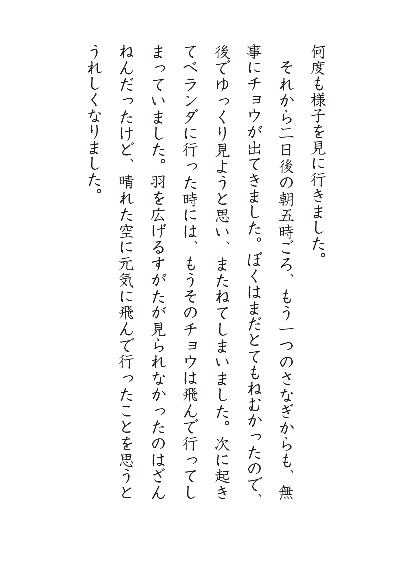 何度も様子を見に行きました。
　それから二日後の朝五時ごろ、もう一つのさなぎからも、無
事にチョウが出てきました。ぼくはまだとてもねむかったので、
後でゆっくり見ようと思い、またねてしまいました。次に起き
てベランダに行った時には、もうそのチョウは飛んで行ってし
まっていました。羽を広げるすがたが見られなかったのはざん
ねんだったけど、晴れた空に元気に飛んで行ったことを思うと
うれしくなりました。